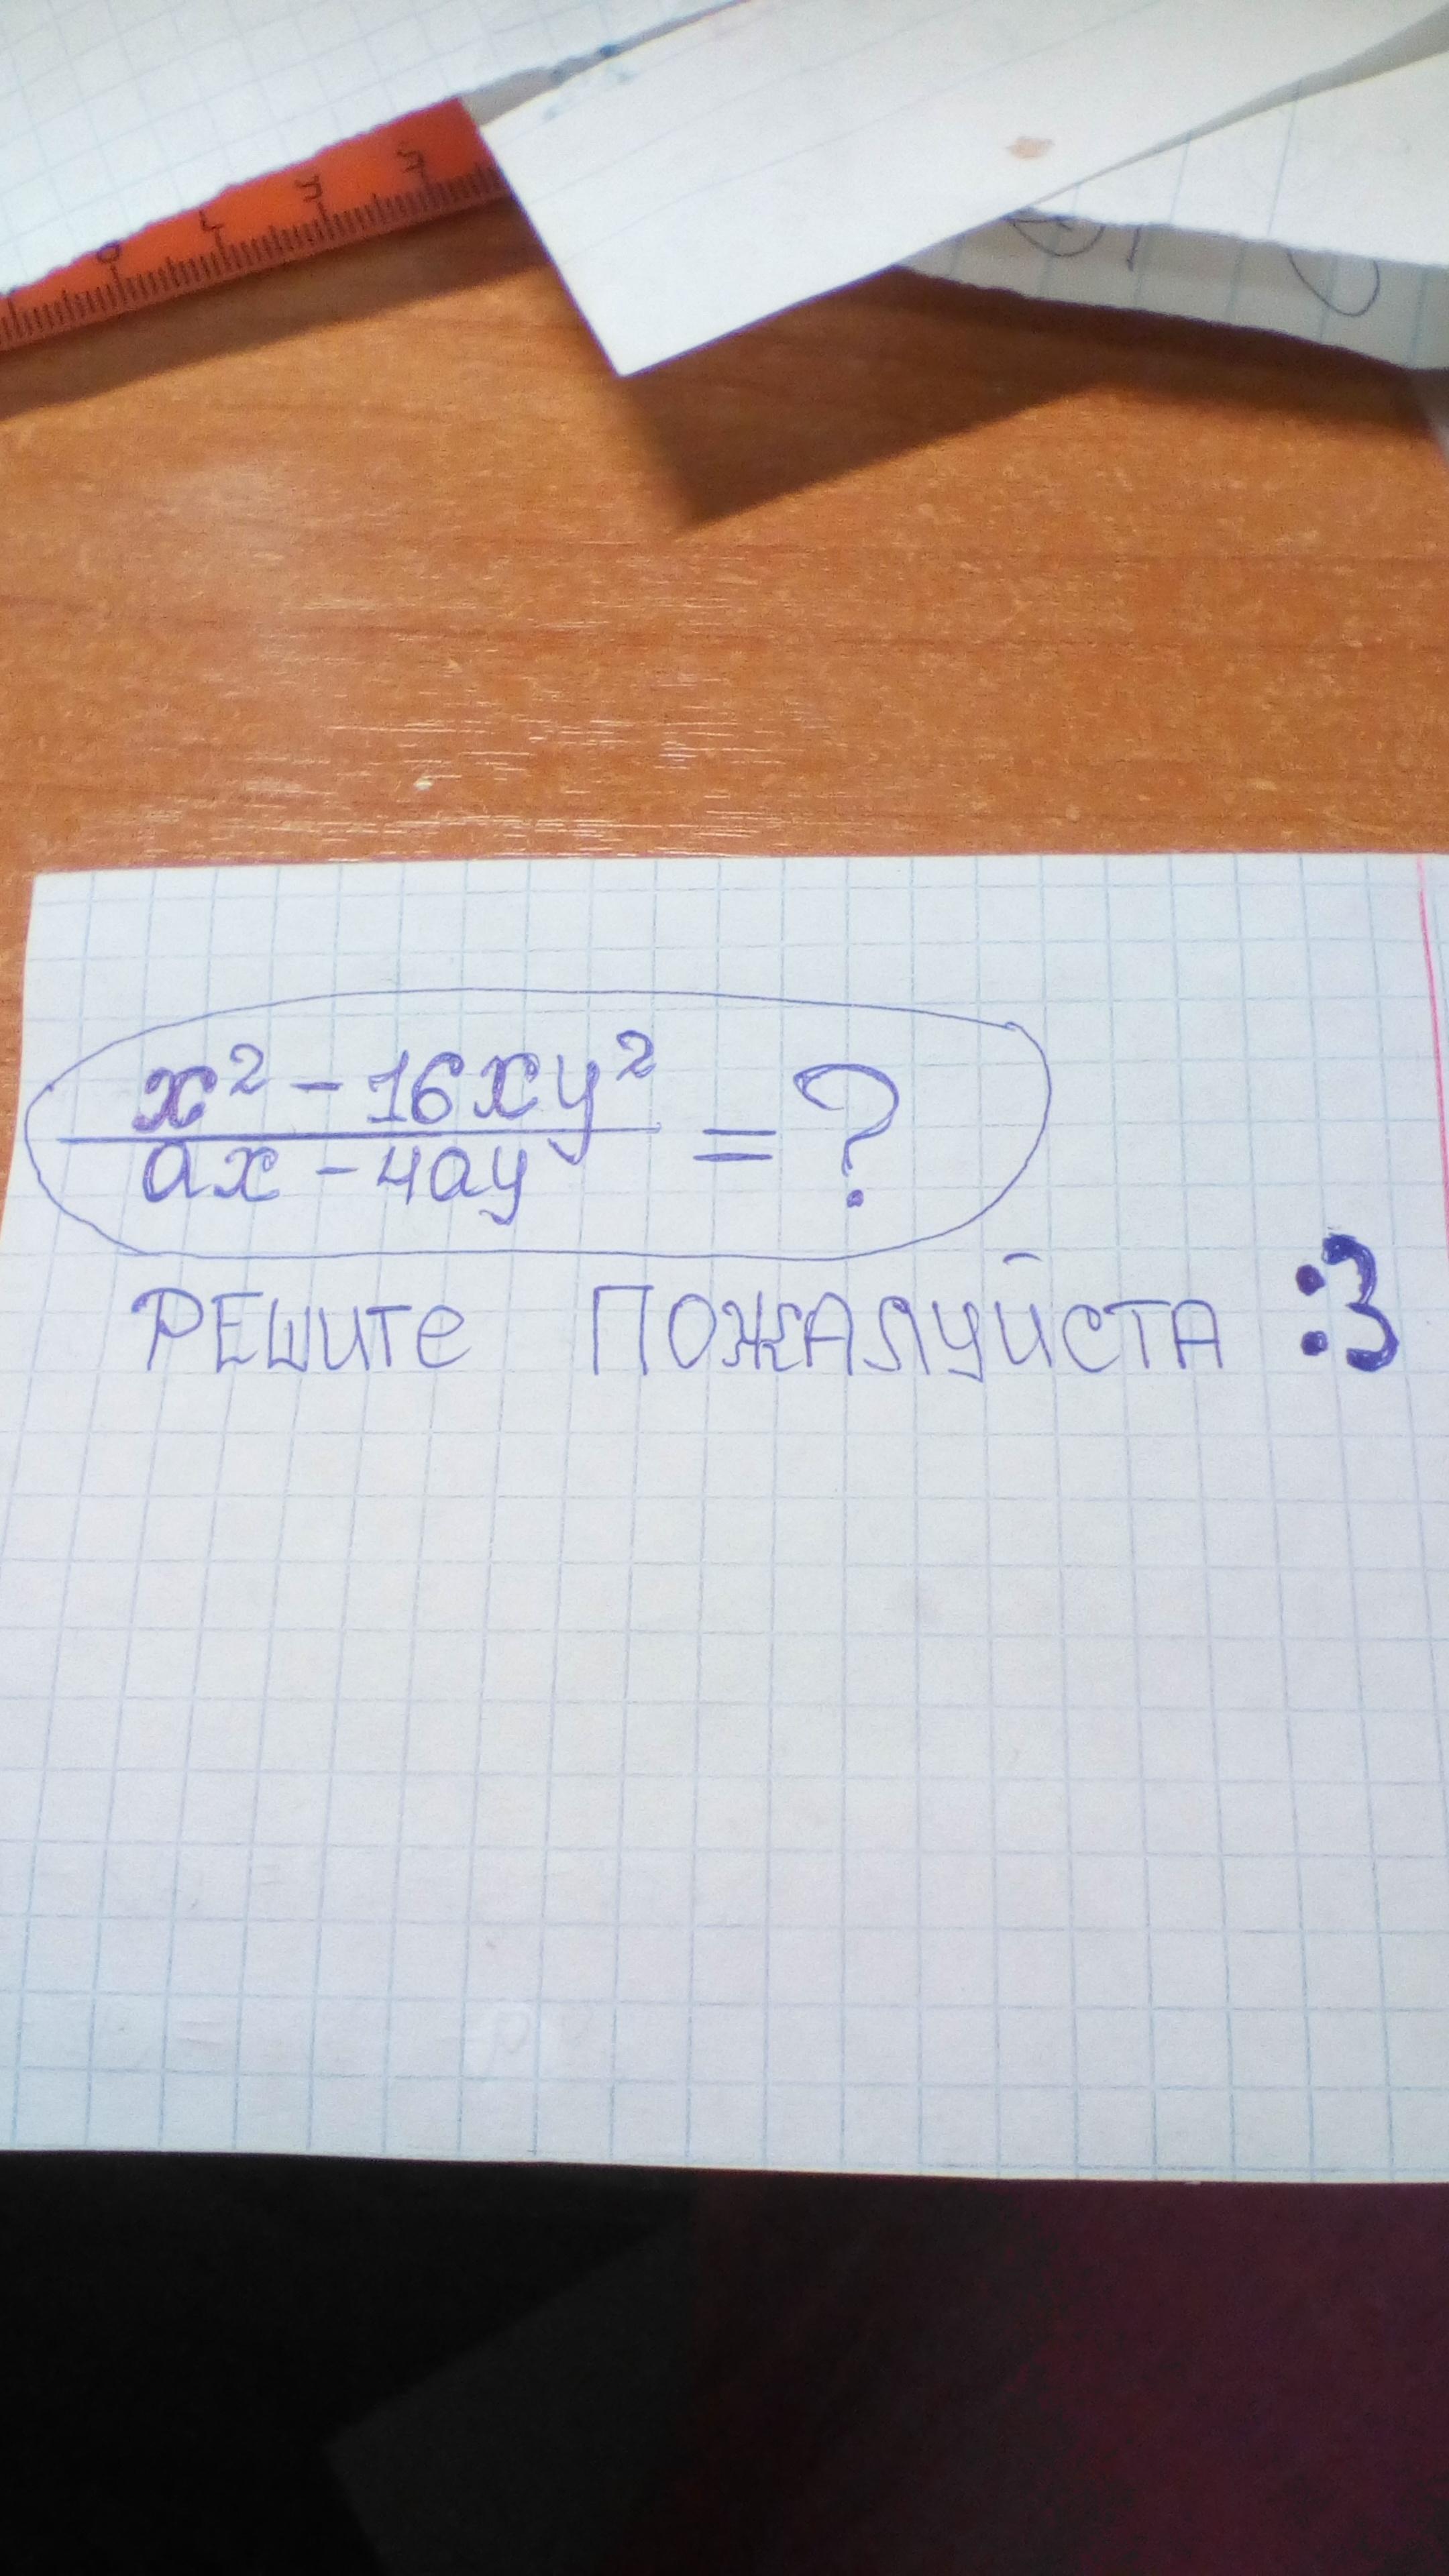 x² - 16xy²
ax - 4ay
= ?
РЕШИТЕ ПОЖАЛУЙСТА :3